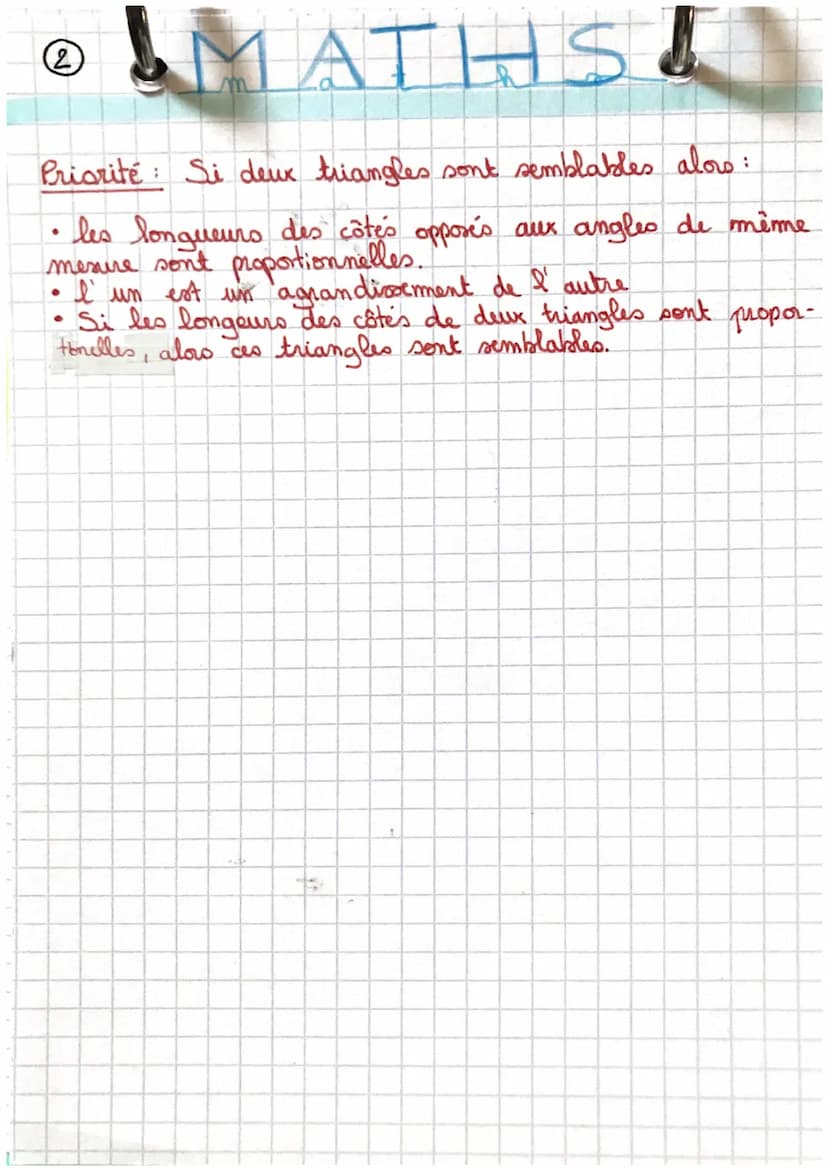 2
MATHS
maths
Priorité : Si deux triangles sont semblables alors :
• les longueurs des côtés opposés aux angles de même
mesure sont proportionnelles.
• l'un est un agrandissement de l'autre
• Si les longeurs des côtés de deux triangles sont propor-
tonelles, alors ces triangles sont semblables.